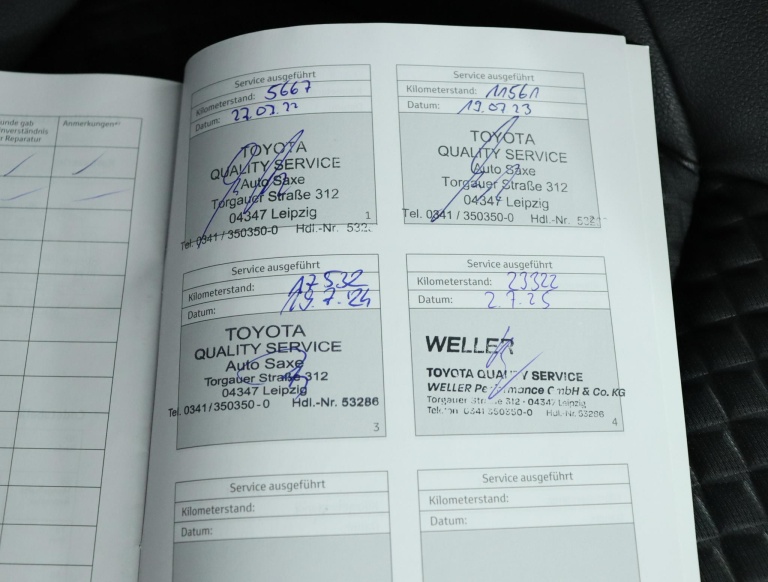 unde gab
inverständnis
r Reparatur
Anmerkungen
Service ausgeführt
Kilometerstand: 5667
Datum: 27.07.22
TOYOTA
QUALITY SERVICE
Auto Saxe
Torgauer Straße 312
04347 Leipzig
1
Tel. 0341/350350-0 Hdl.-Nr. 532
Service ausgeführt
Kilometerstand: 11561
Datum: 19.07.23
TOYOTA
QUALITY SERVICE
Auto Saxe
Torgauer Straße 312
04347 Leipzig
Tel. 0341/350350-0 Hdl.-Nr. 532
Service ausgeführt
Kilometerstand: 17532
Datum: 19.7.24
TOYOTA
QUALITY SERVICE
Auto Saxe
Torgauer Straße 312
04347 Leipzig
Tel. 0341/350350-0 Hdl.-Nr. 53286
3
Service ausgeführt
Kilometerstand: 23322
Datum: 2.7.25
WELLER
TOYOTA QUALITY SERVICE
WELLER Performance GmbH & Co. KG
Torgauer Straße 312 - 04347 Leipzig
Telefon 0341 350350-0 Hdl.-Nr. 53286
4
Service ausgeführt
Kilometerstand:
Datum:
Service ausgeführt
Kilometerstand:
Datum: